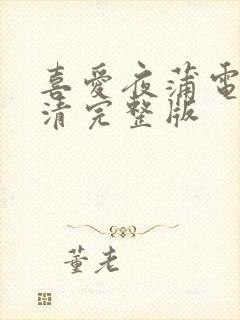 喜愛夜蒲電
清完整版
董老